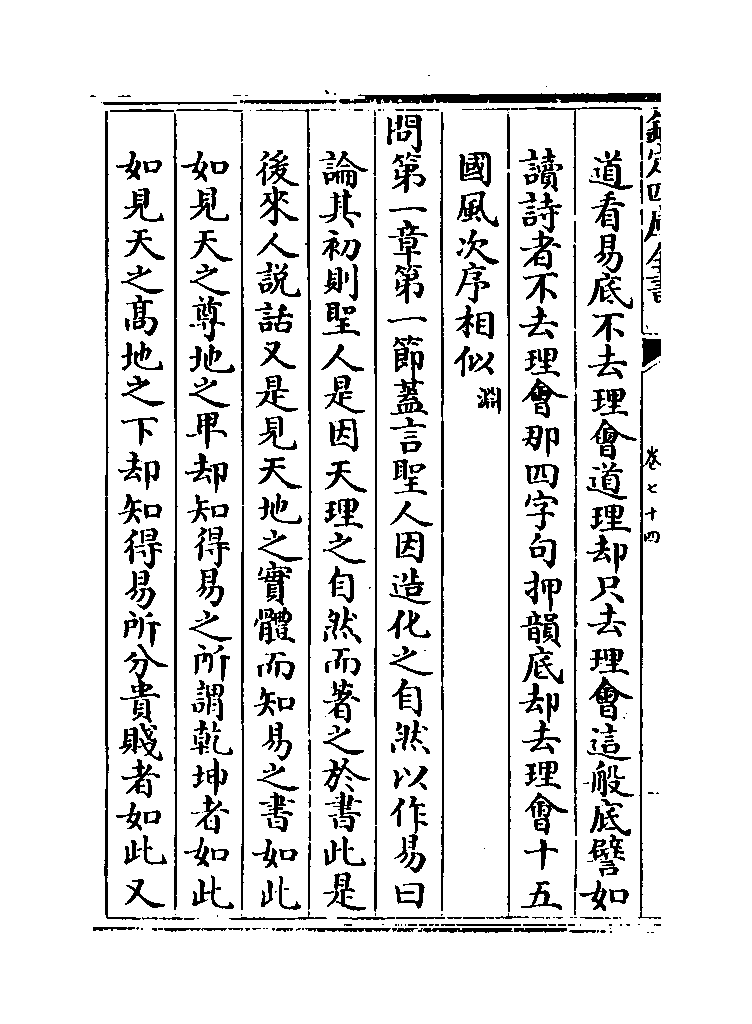 欽定四庫全書
卷七十四
道看易底不去理會道理却只去理會這般底譬如
讀詩者不去理會那四字句押韻底却去理會十五
國風次序相似淵
問第一章第一節蓋言聖人因造化之自然以作易曰
論其初則聖人是因天理之自然而著之於書此是
後來人説話又是見天地之實體而知易之書如此
如見天之尊地之卑却知得易之所謂乾坤者如此
如見天之髙地之下却知得易所分貴賤者如此又